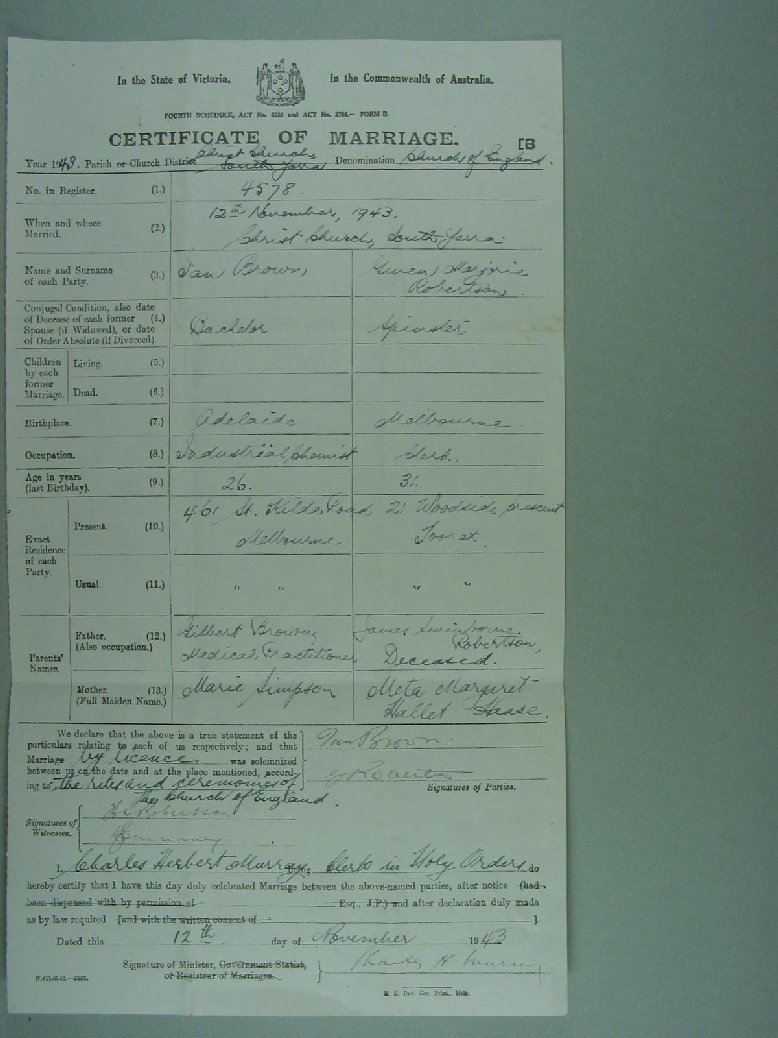 In the State of Victoria. In the Commonwealth of Australia.
FOURTH SCHEDULE, ACT No. and ACT No. — FORM B.
CERTIFICATE OF MARRIAGE. [B
Year 1943. Parish or Church District Christ Church, South Yarra Denomination Church of England.
No. in Register. (1.) 4578.
When and where Married. (2.) 12th November, 1943.
Christ Church, South Yarra.
Name and Surname of each Party. (3.) Ian Brown, Gwen Marjorie
Robertson.
Conjugal Condition, also date
of Decease of each former (4.)
Spouse (if Widowed), or date Bachelor Spinster
of Order Absolute (if Divorced).
Children by each former Marriage. Living. (5.)
Dead. (6.)
Birthplace. (7.) Adelaide Melbourne.
Occupation. (8.) Industrial Chemist Clerk.
Age in years (last Birthday). (9.) 26. 31.
Exact Residence of each Party.
Present. (10.) 461 St. Kilda Road, 21 Woodside Crescent
Melbourne Toorak.
Usual. (11.) " " " "
Parents' Names.
Father. (12.) Gilbert Brown, James Swinborne
(Also occupation.) Medical Practitioner Robertson,
Deceased.
Mother. (13.) Marie Simpson Meta Margaret
(Full Maiden Name.) Hallet Haase.
We declare that the above is a true statement of the
particulars relating to each of us respectively; and that
Marriage by licence was solemnized
between us on the date and at the place mentioned, accord-
ing to the rites and ceremonies of
the Church of England.
Ian Brown.
Signatures of Parties.
Signatures of Witnesses.
I, Charles Herbert Murray, Clerk in Holy Orders do
hereby certify that I have this day duly celebrated Marriage between the above-named parties, after notice (had
been dispensed with by permission of Esq., J.P.) and after declaration duly made
as by law required [and with the written consent of ].
Dated this 12th day of November 1943
Signature of Minister, Government Statist,
or Registrar of Marriages.
Charles H Murray